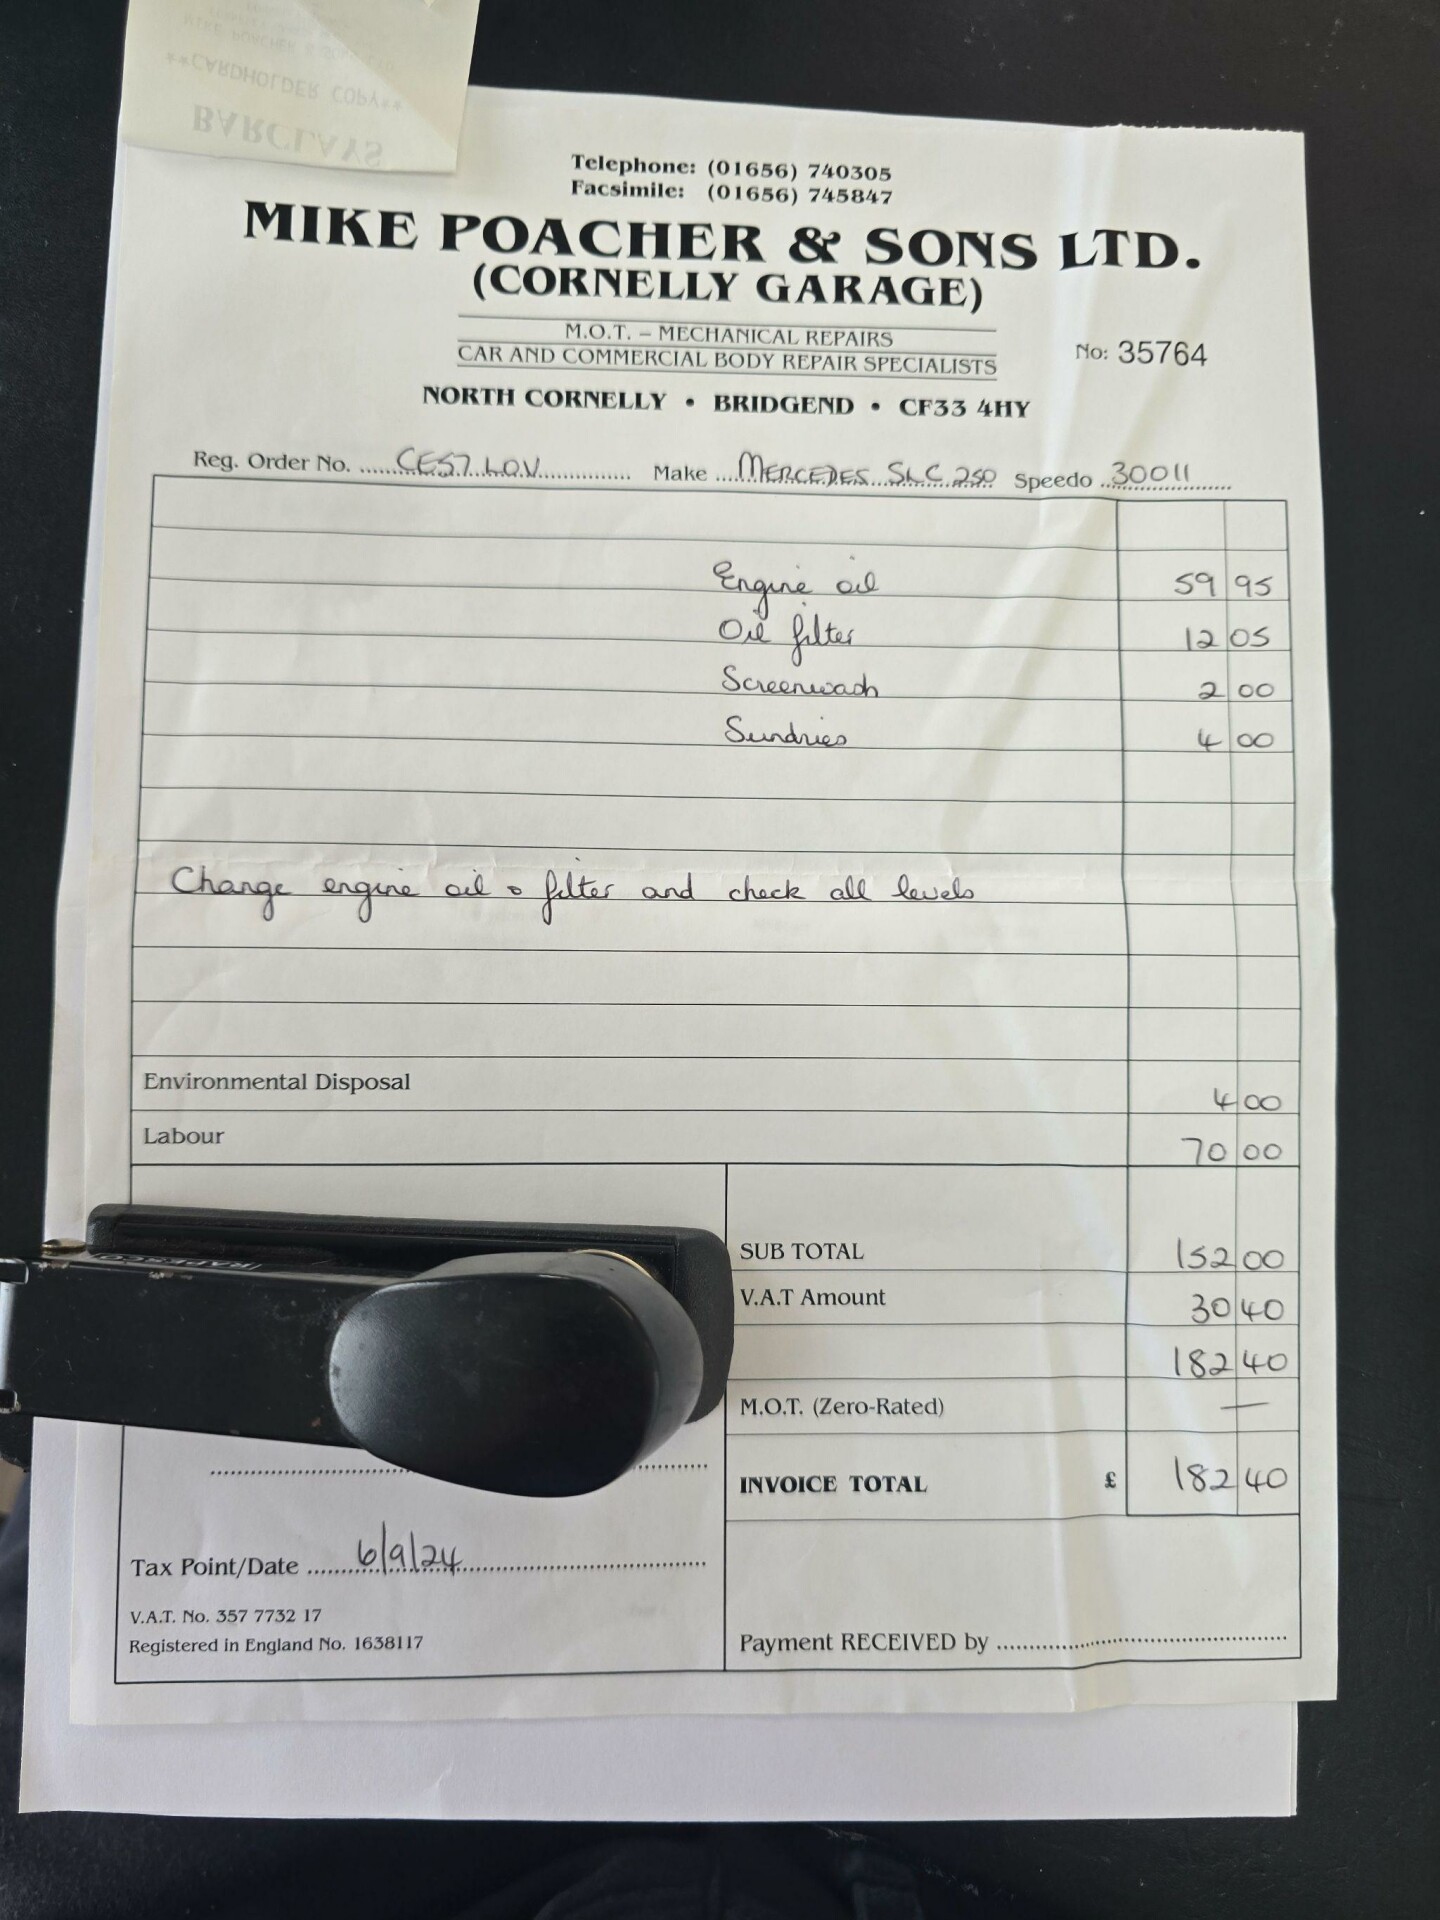 **CARDHOLDER COPY**
BARCLAYS
Telephone: (01656) 740305
Facsimile: (01656) 745847
MIKE POACHER & SONS LTD.
(CORNELLY GARAGE)
M.O.T. – MECHANICAL REPAIRS
CAR AND COMMERCIAL BODY REPAIR SPECIALISTS
No: 35764
NORTH CORNELLY • BRIDGEND • CF33 4HY
Reg. Order No. CE57 LOV Make MERCEDES SLC 250 Speedo 30011
Engine oil 59 95
Oil filter 12 05
Screenwash 2 00
Sundries 4 00
Change engine oil & filter and check all levels
Environmental Disposal 4 00
Labour 70 00
SUB TOTAL 152 00
V.A.T Amount 30 40
182 40
M.O.T. (Zero-Rated) —
INVOICE TOTAL £ 182 40
Tax Point/Date 6/9/24
V.A.T. No. 357 7732 17
Registered in England No. 1638117
Payment RECEIVED by
RAPESCO